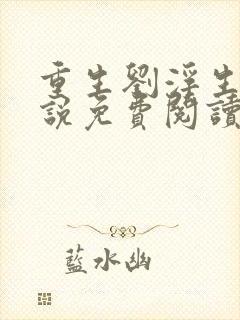 重生劉淫生
說免費閱讀
藍水幽